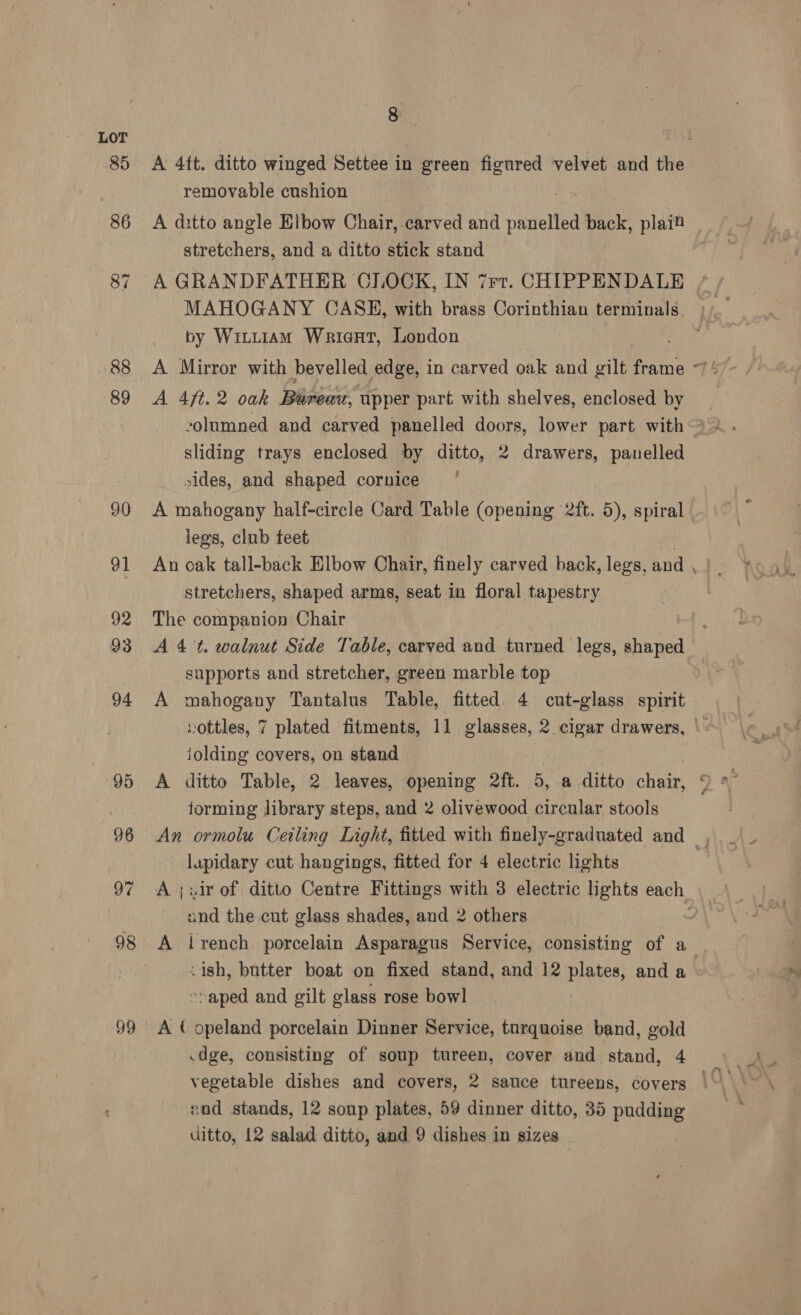 8
LOT
85 A 4ft. ditto winged Settee in green figured velvet and the
removable cushion
86 A ditto angle Elbow Chair, carved and panelled back, plain
stretchers, and a ditto stick stand
87 A GRANDFATHER CLOCK, IN 7FT. CHIPPENDALE
MAHOGANY CASE, with brass Corinthian terminals
by WILLIAM WRIGHT, London
88 A Mirror with bevelled edge, in carved oak and gilt frame
89 A 4ft. 2 oak Bureau, upper part with shelves, enclosed by
columned and carved panelled doors, lower part with
sliding trays enclosed by ditto, 2 drawers, panelled
sides, and shaped cornice
90 A mahogany half-circle Card Table (opening 2ft. 5), spiral
legs, club feet
91 An oak tall-back Elbow Chair, finely carved back, legs, and
stretchers, shaped arms, seat in floral tapestry
92 The companion Chair
93 A 4 t. walnut Side Table, carved and turned legs, shaped
supports and stretcher, green marble top
94 A mahogany Tantalus Table, fitted 4 cut-glass spirit
bottles, 7 plated fitments, 11 glasses, 2 cigar drawers,
folding covers, on stand
95 A ditto Table, 2 leaves, opening 2ft. 5, a ditto chair,
forming library steps, and 2 olivewood circular stools
96 An ormolu Ceiling Light, fitted with finely-graduated and
lapidary cut hangings, fitted for 4 electric lights
97 A pair of ditto Centre Fittings with 3 electric lights each
and the cut glass shades, and 2 others
98 A French porcelain Asparagus Service, consisting of a
dish, butter boat on fixed stand, and 12 plates, and a
shaped and gilt glass rose bowl
99 A Copeland porcelain Dinner Service, turquoise band, gold
edge, consisting of soup tureen, cover and stand, 4
vegetable dishes and covers, 2 sauce tureens, covers
and stands, 12 soup plates, 59 dinner ditto, 35 pudding
ditto, 12 salad ditto, and 9 dishes in sizes